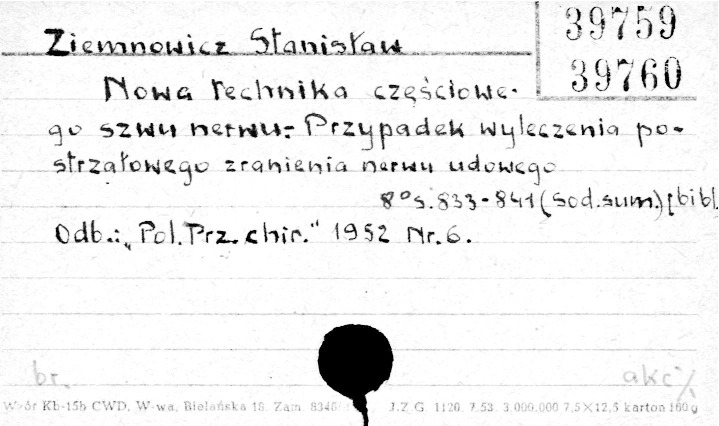 39759
39760
Ziemnowicz Stanisław
Nowa technika częściowe-
go szwu nerwu:- Przypadek wyleczenia po-
strzałowego zranienia nerwu udowego
8°s. 833-841 (sod. sum.) [bibl.
Odb.: "Pol. Prz. chir." 1952 Nr. 6.
br.
akc
Wzór Kb-15b CWD, W-wa, Bielańska 18. Zam. 8346 J.Z.G. 1120. 7.53. 3.000.000 7,5×12,5 karton 160 g